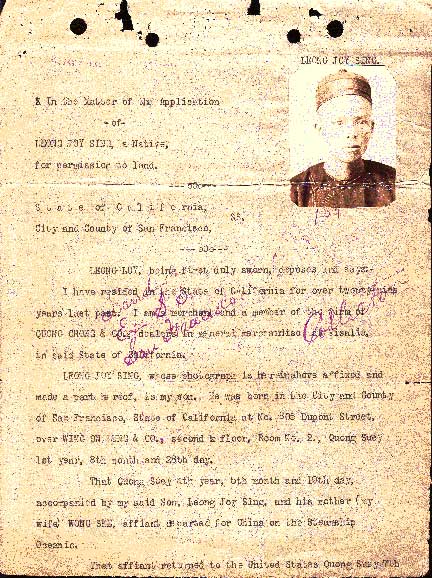 LEONG JOY SING.
In the Matter of the Application
-of-
LEONG JOY SING, a Native,
for permission to land.
---oOo---
State of California,
SS,
City and County of San Francisco,
---oOo---
LEONG LOY, being first duly sworn, deposes and says:-
I have resided in the State of California for over
years last past. I am a merchant and a member of the firm of
QUONG CHONG & CO., dealers in general merchandise at Visalia,
in said State of California.
LEONG JOY SING, whose photograph is hereinabove affixed and
made a part hereof, is my son. He was born in the City and County
of San Francisco, State of California at No. Dupont Street,
over & CO., second floor, Room No. 2., Quong Suey
1st year, 8th month and 28th day.
That Quong Suey 4th year, 5th month and 19th day,
accompanied by my said Son, Leong Joy Sing, and his mother (my
wife) WONG SHE, affiant departed for China on the Steamship
Oceanic.
That affiant returned to the United States Quong Suey 7th